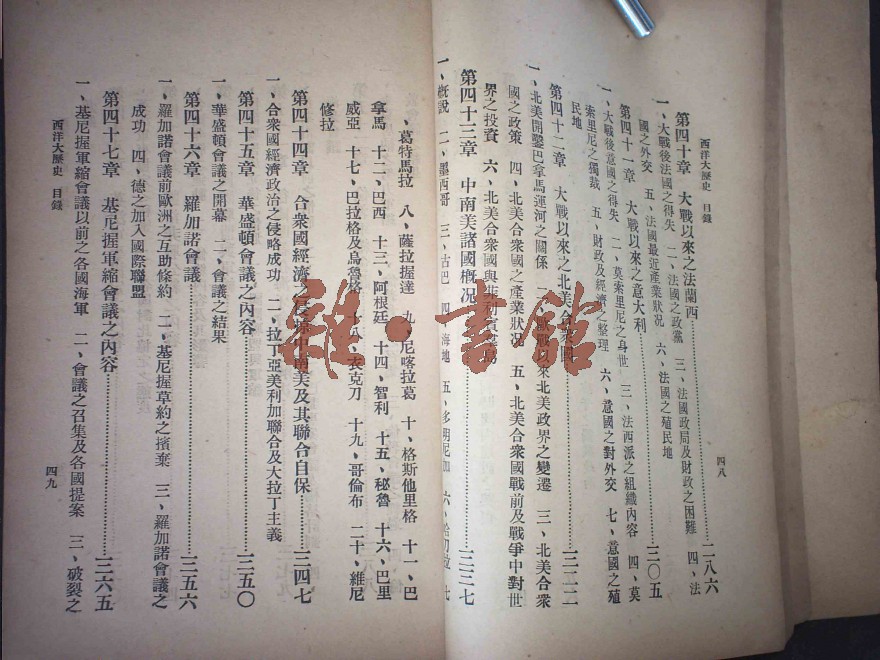 西洋大歷史 目錄
四八
第四十章 大戰以來之法蘭西……二八六
一、大戰後法國之得失 二、法國之政黨 三、法國政局及財政之困難 四、法
國之外交 五、法國最近產業狀況 六、法國之殖民地
第四十一章 大戰以來之意大利……三〇五
一、大戰後意國之得失 二、莫索里尼之身世 三、法西派之組織內容 四、莫
索里尼之獨裁 五、財政及經濟之整理 六、意國之對外交 七、意國之殖
民地
第四十二章 大戰以來之北美合衆國……三二二
一、北美開鑿巴拿馬運河之關係 二、歐戰以來北美政界之變遷 三、北美合衆
國之政策 四、北美合衆國之產業狀況 五、北美合衆國戰前及戰爭中對世
界之投資 六、北美合衆國與菲利賓
第四十三章 中南美諸國概况……三三七
一、概說 二、墨西哥 三、古巴 四、海地 五、多明尼加 六、 七
、葛特馬拉 八、薩拉握達 九、尼喀拉葛 十、格斯他里格 十一、巴
拿馬 十二、巴西 十三、阿根廷 十四、智利 十五、秘魯 十六、巴里
威亞 十七、巴拉格及烏魯格 十八、衣克刀 十九、哥倫布 二十、維尼
修拉
第四十四章 合衆國經濟之侵掠中南美及其聯合自保……三四七
一、合衆國經濟政治之侵略成功 二、拉丁亞美利加聯合及大拉丁主義
第四十五章 華盛頓會議之內容……三五〇
一、華盛頓會議之開幕 二、會議之結果
第四十六章 羅加諾會議……三五六
一、羅加諾會議前歐洲之互助條約 二、基尼握草約之擯棄 三、羅加諾會議之
成功 四、德之加入國際聯盟
第四十七章 基尼握軍縮會議之內容……三六五
一、基尼握軍縮會議以前之各國海軍 二、會議之召集及各國提案 三、破裂之
西洋大歷史 目錄
四九
雜·書館